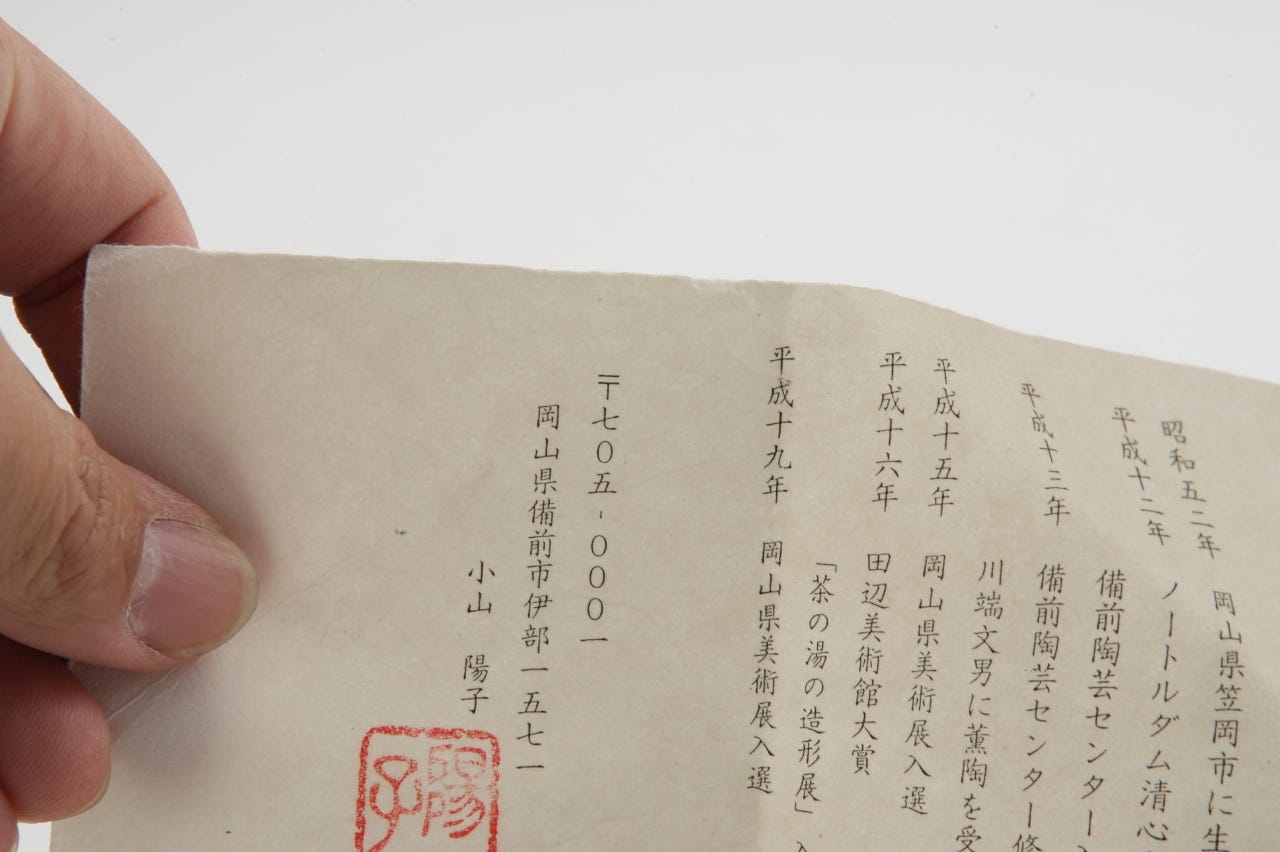 昭和五二年 岡山県笠岡市に生
ノートルダム清心
平成十二年 備前陶芸センター
平成十三年 備前陶芸センター修
川端文男に薫陶を受
平成十五年 岡山県美術展入選
平成十六年 田辺美術館大賞
「茶の湯の造形展」入
平成十九年 岡山県美術展入選
〒七〇五-〇〇〇一
岡山県備前市伊部一五七一
小山 陽子
陽子